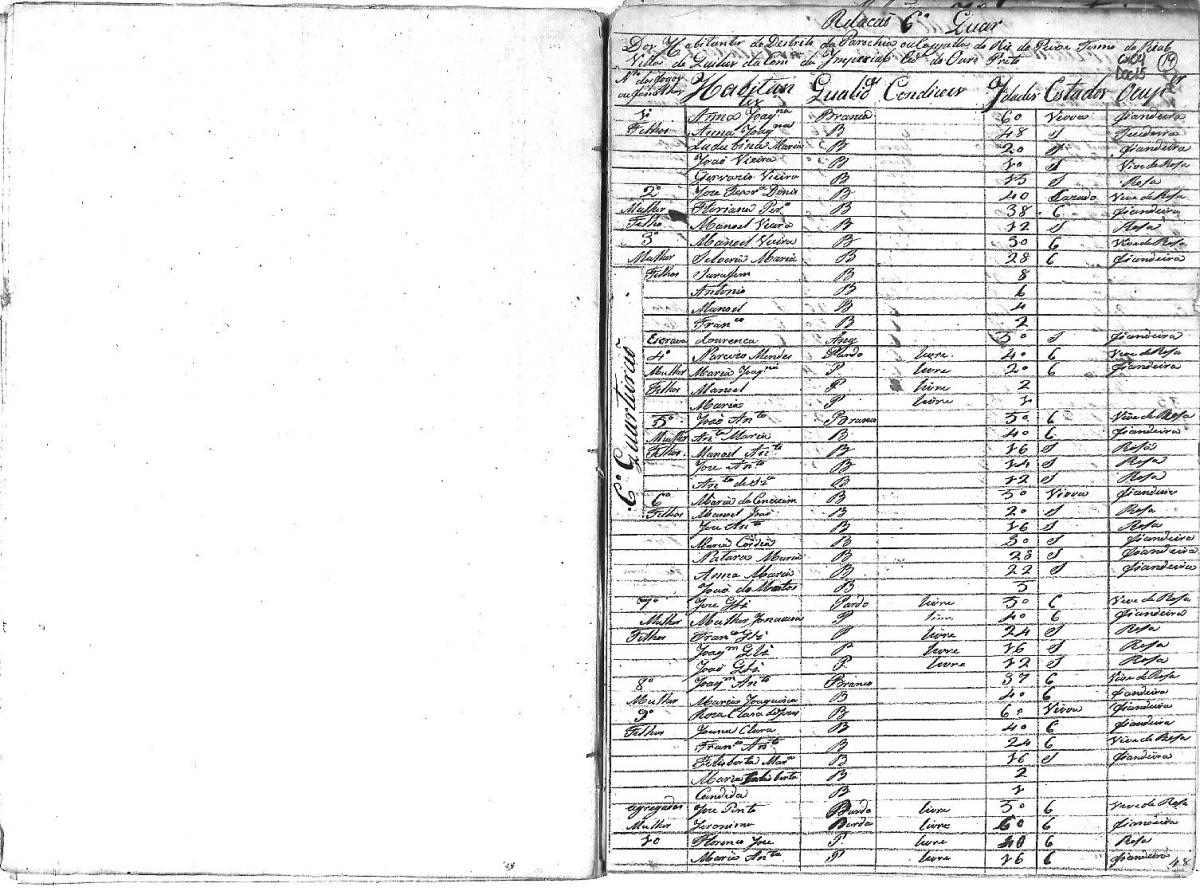 Relacaõ 6º Quar
Dos Habitantes do Destrito da Parochia ou Cappella do Rio do Peixe Termo da Real
Villa de Queluz da Com. da Imperial Cid.e do Ouro Preto
cx04 Doc 15 19
Nos dos fogos ou familhas Habitantes Qualid.es Condicoes Idades Estados Ocup.es
1º Anna Joaq.na Branca 60 Viuva fiandeira
Filhos Anna Joaq.na B 48 S
Ludubina Maria B 20 S fiandeira
João Vieira B S Vive de Rosa
Gervazio Vieira B 15 S Rosa
2º Joze B 40 Cazado Vive de Rosa
Mulher Floriana Per.a B 38 C fiandeira
Filho Manoel Vieira B 12 S Rosa
3º Manoel Vieira B 30 C Vive de Rosa
Mulher Silveria Maria B 28 C fiandeira
Filhos B 8
Antonio B 6
Manoel B 4
Fran.co B 2
Escrava Lourença Ang 30 S fiandeira
4º Narcizo Mendes Pardo livre 40 C Vive de Rosa
Mulher Maria Joaq.na P livre 20 C fiandeira
Filhos Manoel P livre 2
Maria P livre 1
6º Quarteiraõ
5º João An.to Branco 50 C Vive de Rosa
Mulher An.ta Maria B 40 C fiandeira
Filhos Manoel An.to B 16 S Rosa
Joze An.to B 14 S Rosa
An.to de B 12 S Rosa
6º Maria da Conceicam B 50 Viuva fiandeira
Filhos Manoel João B 20 S Rosa
Joze An.to B 16 S Rosa
Maria B 30 S fiandeira
Maria B 28 S fiandeira
Anna Maria B 22 S fiandeira
João de Mattos B 5
7º Joze Glz Pardo livre 50 C Vive de Rosa
Mulher P livre 40 C fiandeira
Filhos Fran.co Glz P livre 24 S Rosa
Joaq.m Glz P livre 16 S Rosa
João Glz P livre 12 S Rosa
8º Joaq.m An.to Branco 37 C Vive de Rosa
Mulher Maria Joaquina B 40 C fiandeira
9º Roza Clara de Jezus B 60 Viuva fiandeira
Filhos Joana Clara B 40 C fiandeira
Fran.co An.to B 24 C Vive de Rosa
Felisberta Mar.a B 16 S fiandeira
Maria Felisberta B 2
Candida B 1
Agregados Joze Pinto Pardo livre 50 C Vive de Rosa
Mulher Jeronima Parda livre 60 C fiandeira
10 Florencio Joze P livre C Rosa
Maria An.ta P livre 16 C fiandeira
48